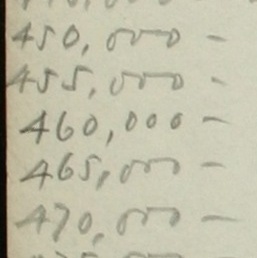 450,000 -
455,000 -
460,000 -
465,000 -
470,000 -